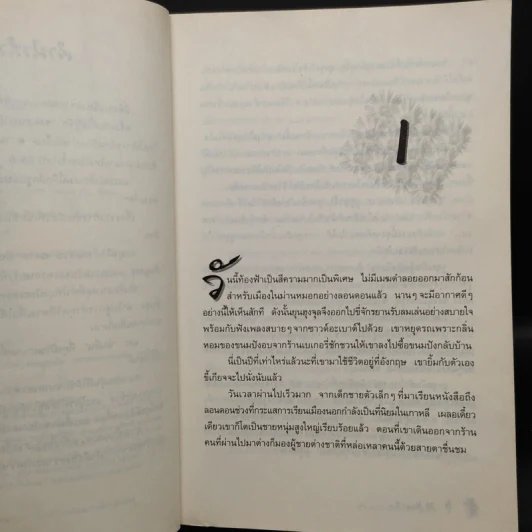 1
วันนี้ท้องฟ้าเป็นสีครามมากเป็นพิเศษ ไม่มีเมฆดำลอยออกมาสักก้อน
สำหรับเมืองในม่านหมอกอย่างลอนดอนแล้ว นานๆ จะมีอากาศดีๆ
อย่างนี้ให้เห็นสักที ดังนั้นยุนฮุงจุลจึงออกไปขี่จักรยานรับลมเล่นอย่างสบายใจ
พร้อมกับฟังเพลงสบายๆ จากซาวด์อะเบาต์ไปด้วย เขาหยุดรถเพราะกลิ่น
หอมของขนมปังอบจากร้านเบเกอรี่ชักชวนให้เขาลงไปซื้อขนมปังกลับบ้าน
นี่เป็นปีที่เท่าไหร่แล้วนะที่เขามาใช้ชีวิตอยู่ที่อังกฤษ เขายิ้มกับตัวเอง
ขี้เกียจจะไปนั่งนับแล้ว
วันเวลาผ่านไปเร็วมาก จากเด็กชายตัวเล็กๆ ที่มาเรียนหนังสือถึง
ลอนดอนช่วงที่กระแสการเรียนเมืองนอกกำลังเป็นที่นิยมในเกาหลี เผลอเดี๋ยว
เดียวเขาก็โตเป็นชายหนุ่มสูงใหญ่เรียบร้อยแล้ว ตอนที่เขาเดินออกจากร้าน
คนที่ผ่านไปมาต่างก็มองผู้ชายต่างชาติที่หล่อเหลาคนนี้ด้วยสายตาชื่นชม